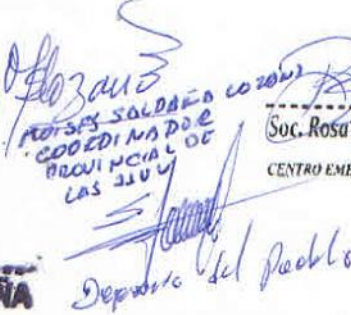 MOISES SALDAÑA LOZANO
COORDINADOR
PROVINCIAL DE
LAS JJVV
Soc. Rosa
CENTRO EME
del Pueblo
ÑA